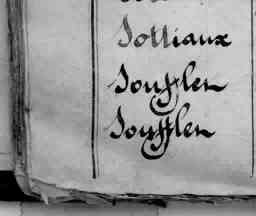 Solliaux
Soufflen
Soufflen